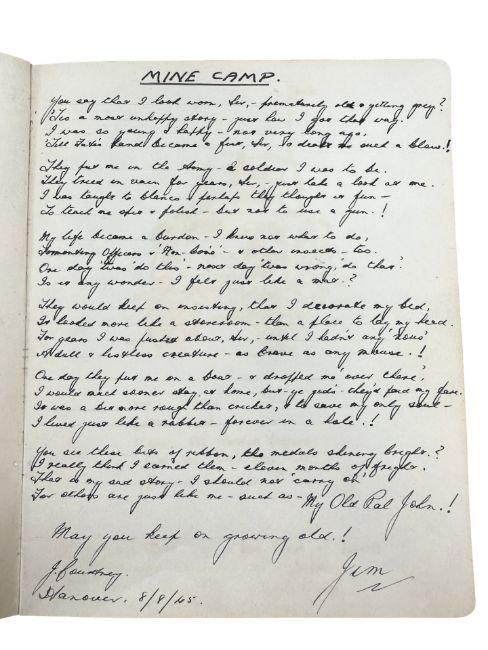 MINE CAMP.
You say that I look worn, Sir, - prematurely old & getting grey?
'Tis a most unhappy story - just how I got that way.
I was so young & happy - not very long ago,
'Till Fate's hand became a fist, Sir, & dealt me such a blow.!
They put me in the Army - a soldier I was to be.
They tried in vain for years, Sir, - just take a look at me.
I was taught to blanco & perhaps they thought it fun -
To teach me spit & polish - but not to use a gun.!
My life became a burden - I knew not what to do,
Tormenting Officers & 'Non-Com's' - & other insects, too.
One day 'twas 'do this' - next day 'twas wrong, 'do that'.
Is it any wonder - I felt just like a mat.?
They would keep on insisting, that I decorate my bed,
It looked more like a storeroom - than a place to lay my head.
For years I was pushed about, Sir, - until I hadn't any 'nous'
A dull & listless creature - as brave as any mouse.!
One day they put me on a boat - & dropped me 'over there'.
I would much sooner stay at home, but ye gods - they'd paid my fare.
It was a bit more rough than cricket, & to save my only soul -
I lived just like a rabbit - forever in a hole.!
You see these bits of ribbon, the medals shining bright.?
I really think I earned them - eleven months of fright.
That is my sad story - I should not 'carry on'
For others are just like me - such as - My Old Pal John.!
May you keep on growing old.!
J. Courtney.
Jim
Hanover. 8/8/45.